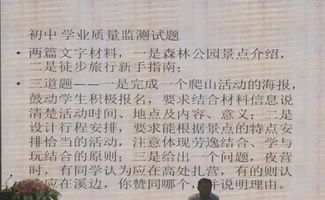 初中学业质量监测试题
• 两篇文字材料，一是森林公园景点介绍，
二是徒步旅行新手指南；
• 三道题——一是完成一个爬山活动的海报，
鼓动学生积极报名，要求结合材料信息说
清楚活动时间、地点及内容、意义；二是
设计行程安排，要求能根据景点的特点安
排恰当的活动，注意体现劳逸结合、学与
玩结合的原则；三是给出一个问题，夜营
时，有同学认为应在高处扎营，有的则认
应在溪边，你赞同哪个，并说明理由。